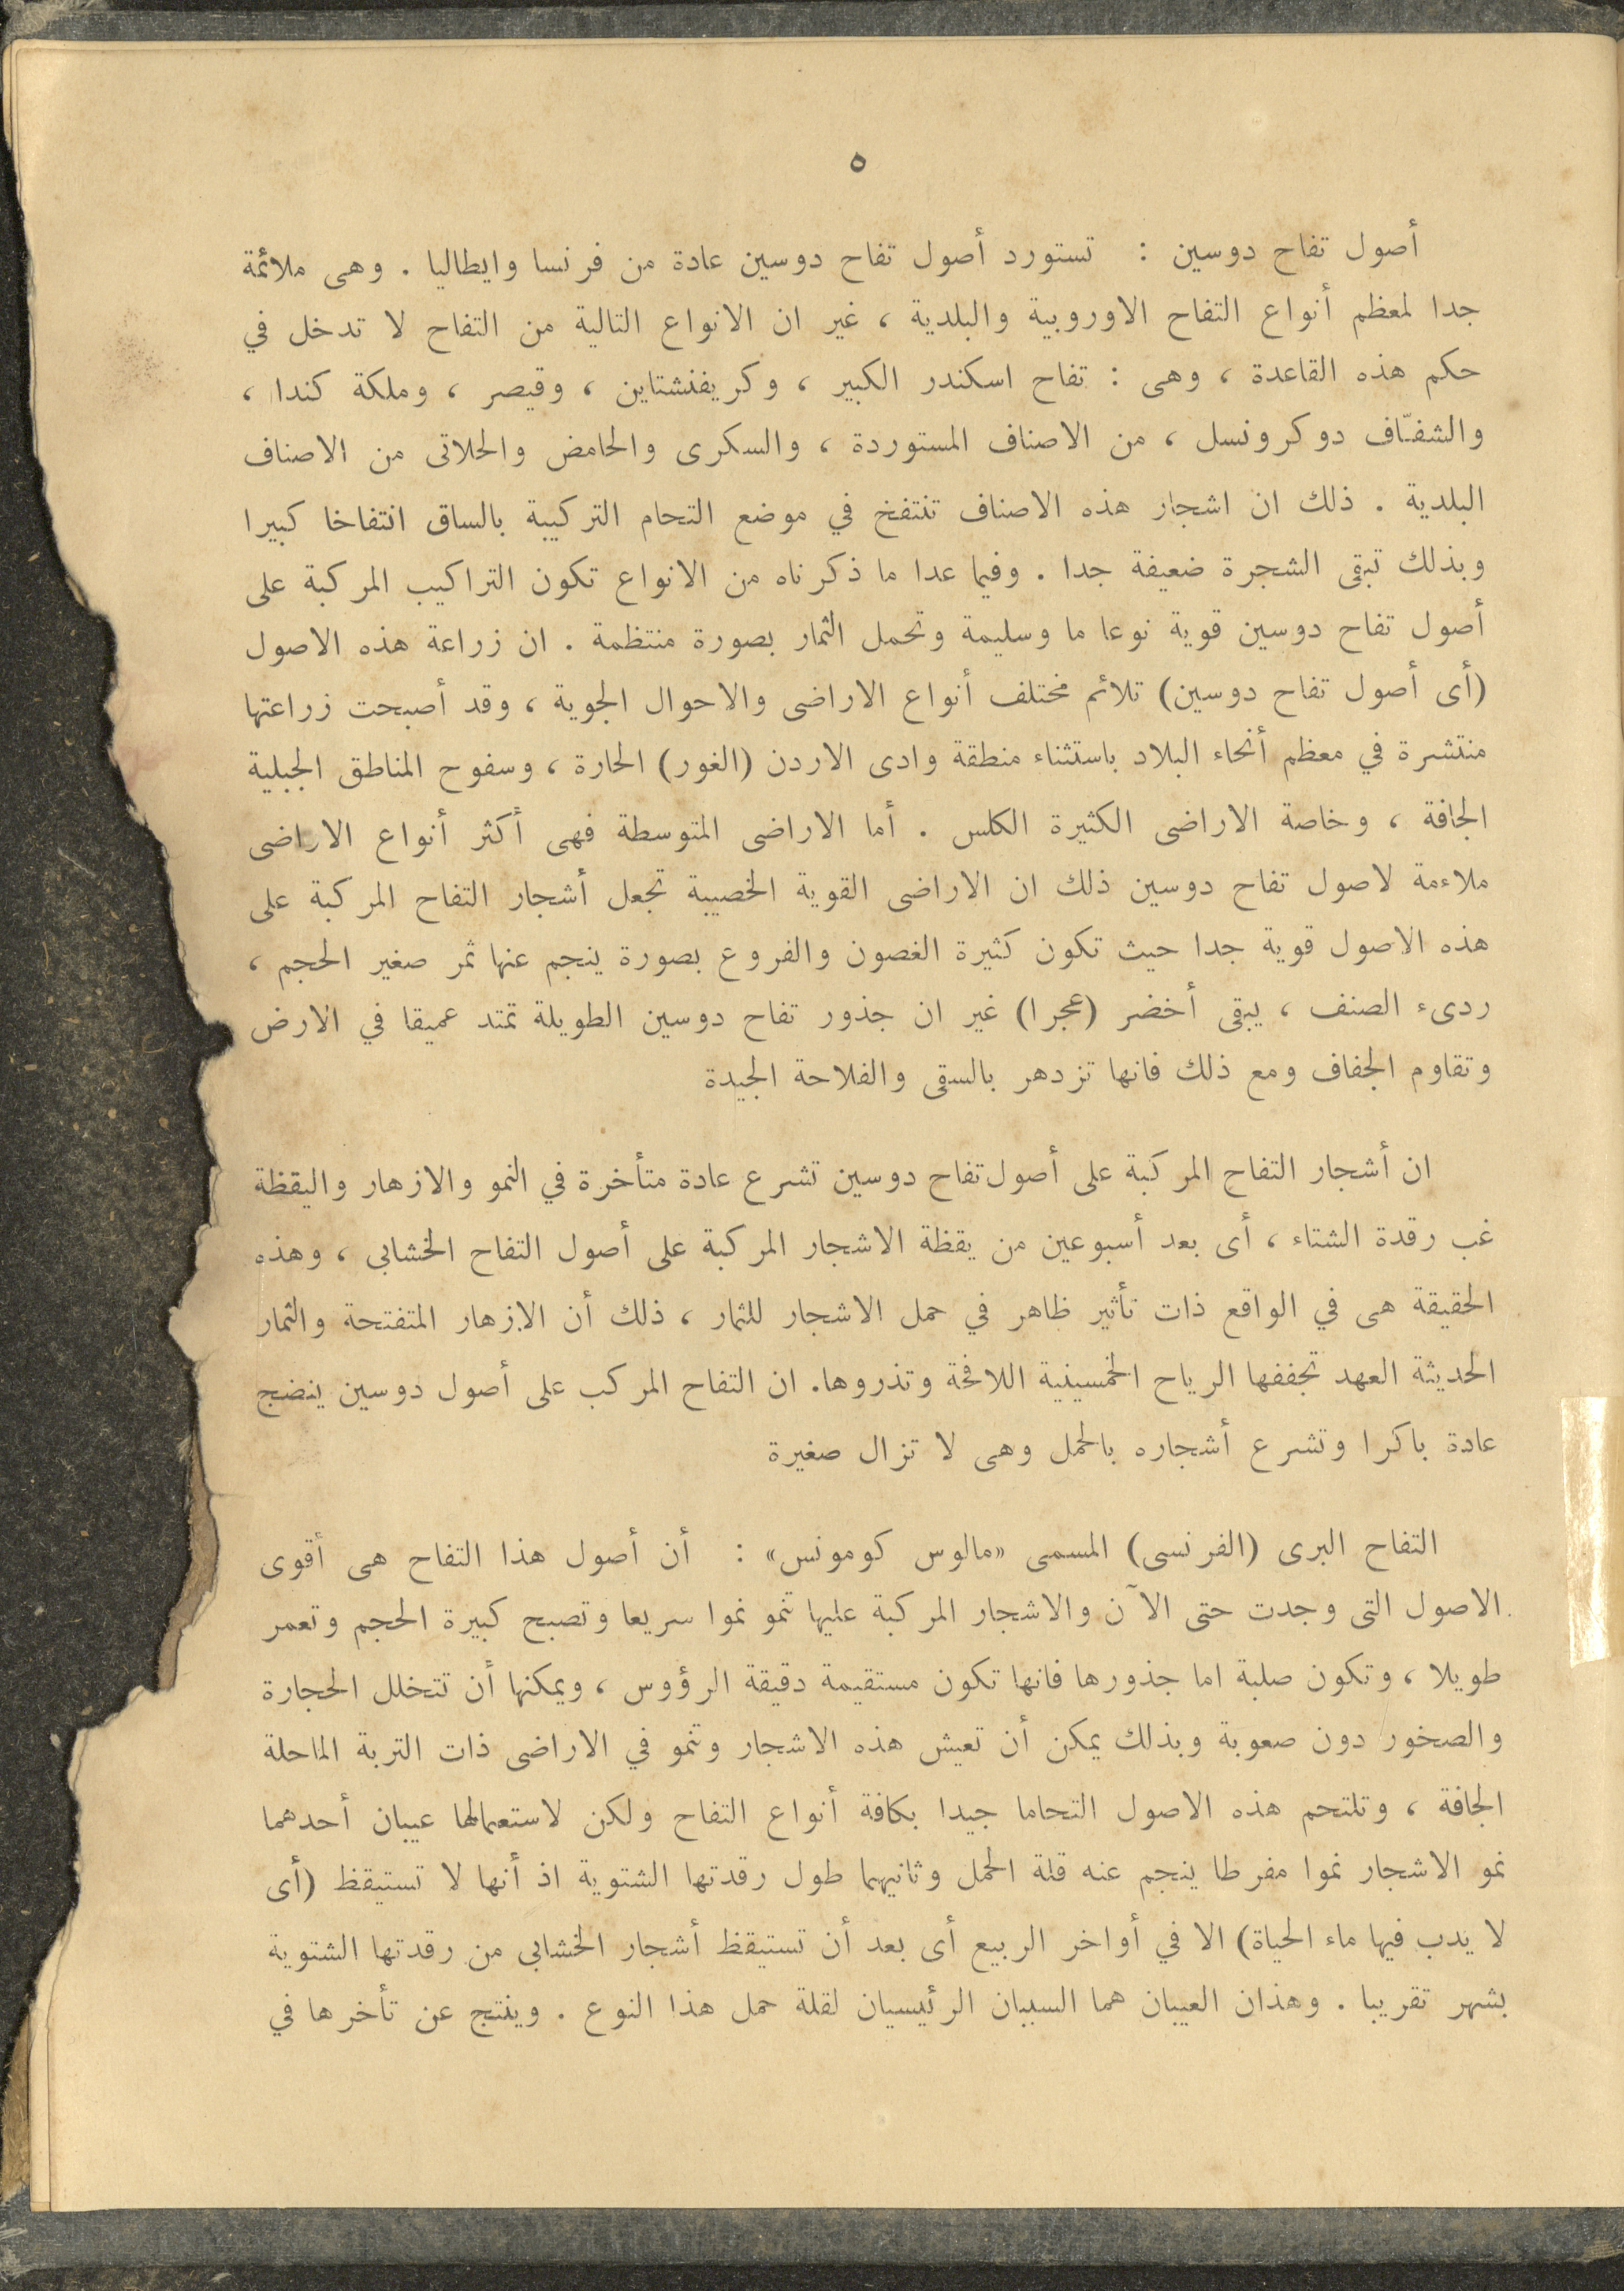 ٥
أصول تفاح دوسين : تستورد أصول تفاح دوسين عادة من فرنسا وايطاليا . وهى ملائمة
جدا لمعظم أنواع التفاح الاوروبية والبلدية ، غير ان الانواع التالية من التفاح لا تدخل في
حكم هذه القاعدة ، وهى : تفاح اسكندر الكبير ، وكريفنشتاين ، وقيصر ، وملكة كندا ،
والشفّاف دوكرونسل ، من الاصناف المستوردة ، والسكرى والحامض والحلاتى من الاصناف
البلدية . ذلك ان اشجار هذه الاصناف تنتفخ في موضع التحام التركيبة بالساق انتفاخا كبيرا
وبذلك تبقى الشجرة ضعيفة جدا . وفيما عدا ما ذكرناه من الانواع تكون التراكيب المركبة على
أصول تفاح دوسين قوية نوعا ما وسليمة وتحمل الثمار بصورة منتظمة . ان زراعة هذه الاصول
(أى أصول تفاح دوسين) تلائم مختلف أنواع الاراضى والاحوال الجوية ، وقد أصبحت زراعتها
منتشرة في معظم أنحاء البلاد باستثناء منطقة وادى الاردن (الغور) الحارة ، وسفوح المناطق الجبلية
الجافة ، وخاصة الاراضى الكثيرة الكلس . أما الاراضى المتوسطة فهى أكثر أنواع الاراضى
ملاءمة لاصول تفاح دوسين ذلك ان الاراضى القوية الخصيبة تجعل أشجار التفاح المركبة على
هذه الاصول قوية جدا حيث تكون كثيرة الغصون والفروع بصورة ينجم عنها ثمر صغير الحجم ،
ردىء الصنف ، يبقى أخضر (عجرا) غير ان جذور تفاح دوسين الطويلة تمتد عميقا في الارض
وتقاوم الجفاف ومع ذلك فانها تزدهر بالسقى والفلاحة الجيدة
ان أشجار التفاح المركبة على أصول تفاح دوسين تشرع عادة متأخرة في النمو والازهار واليقظة
غب رقدة الشتاء ، أى بعد أسبوعين من يقظة الاشجار المركبة على أصول التفاح الخشابى ، وهذه
الحقيقة هى في الواقع ذات تأثير ظاهر في حمل الاشجار للثمار ، ذلك أن الازهار المتفتحة والثمار
الحديثة العهد تجففها الرياح الخمسينية اللافحة وتذروها. ان التفاح المركب على أصول دوسين ينضج
عادة باكرا وتشرع أشجاره بالحمل وهى لا تزال صغيرة
التفاح البرى (الفرنسى) المسمى «مالوس كومونس» : أن أصول هذا التفاح هى أقوى
الاصول التى وجدت حتى الآن والاشجار المركبة عليها تنمو نموا سريعا وتصبح كبيرة الحجم وتعمر
طويلا ، وتكون صلبة اما جذورها فانها تكون مستقيمة دقيقة الرؤوس ، ويمكنها أن تتخلل الحجارة
والصخور دون صعوبة وبذلك يمكن أن تعيش هذه الاشجار وتنمو في الاراضى ذات التربة الماحلة
الجافة ، وتلتحم هذه الاصول التحاما جيدا بكافة أنواع التفاح ولكن لاستعمالها عيبان أحدهما
نمو الاشجار نموا مفرطا ينجم عنه قلة الحمل وثانيهما طول رقدتها الشتوية اذ أنها لا تستيقظ (أى
لا يدب فيها ماء الحياة) الا في أواخر الربيع أى بعد أن تستيقظ أشجار الخشابى من رقدتها الشتوية
بشهر تقريبا . وهذان العيبان هما السببان الرئيسيان لقلة حمل هذا النوع . وينتج عن تأخرها في